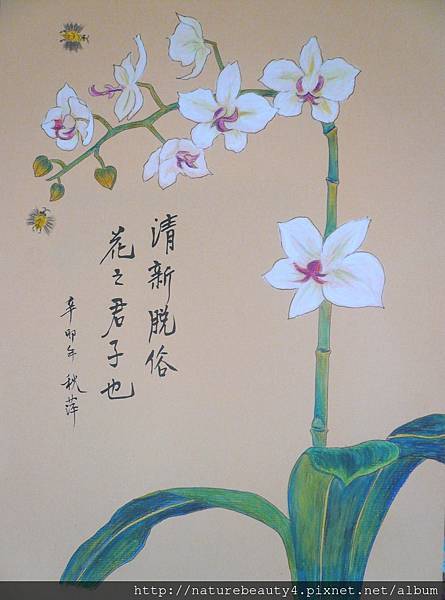 清新脫俗
花之君子也
辛卯年 秋萍
http://naturebeauty4.pixnet.net/album